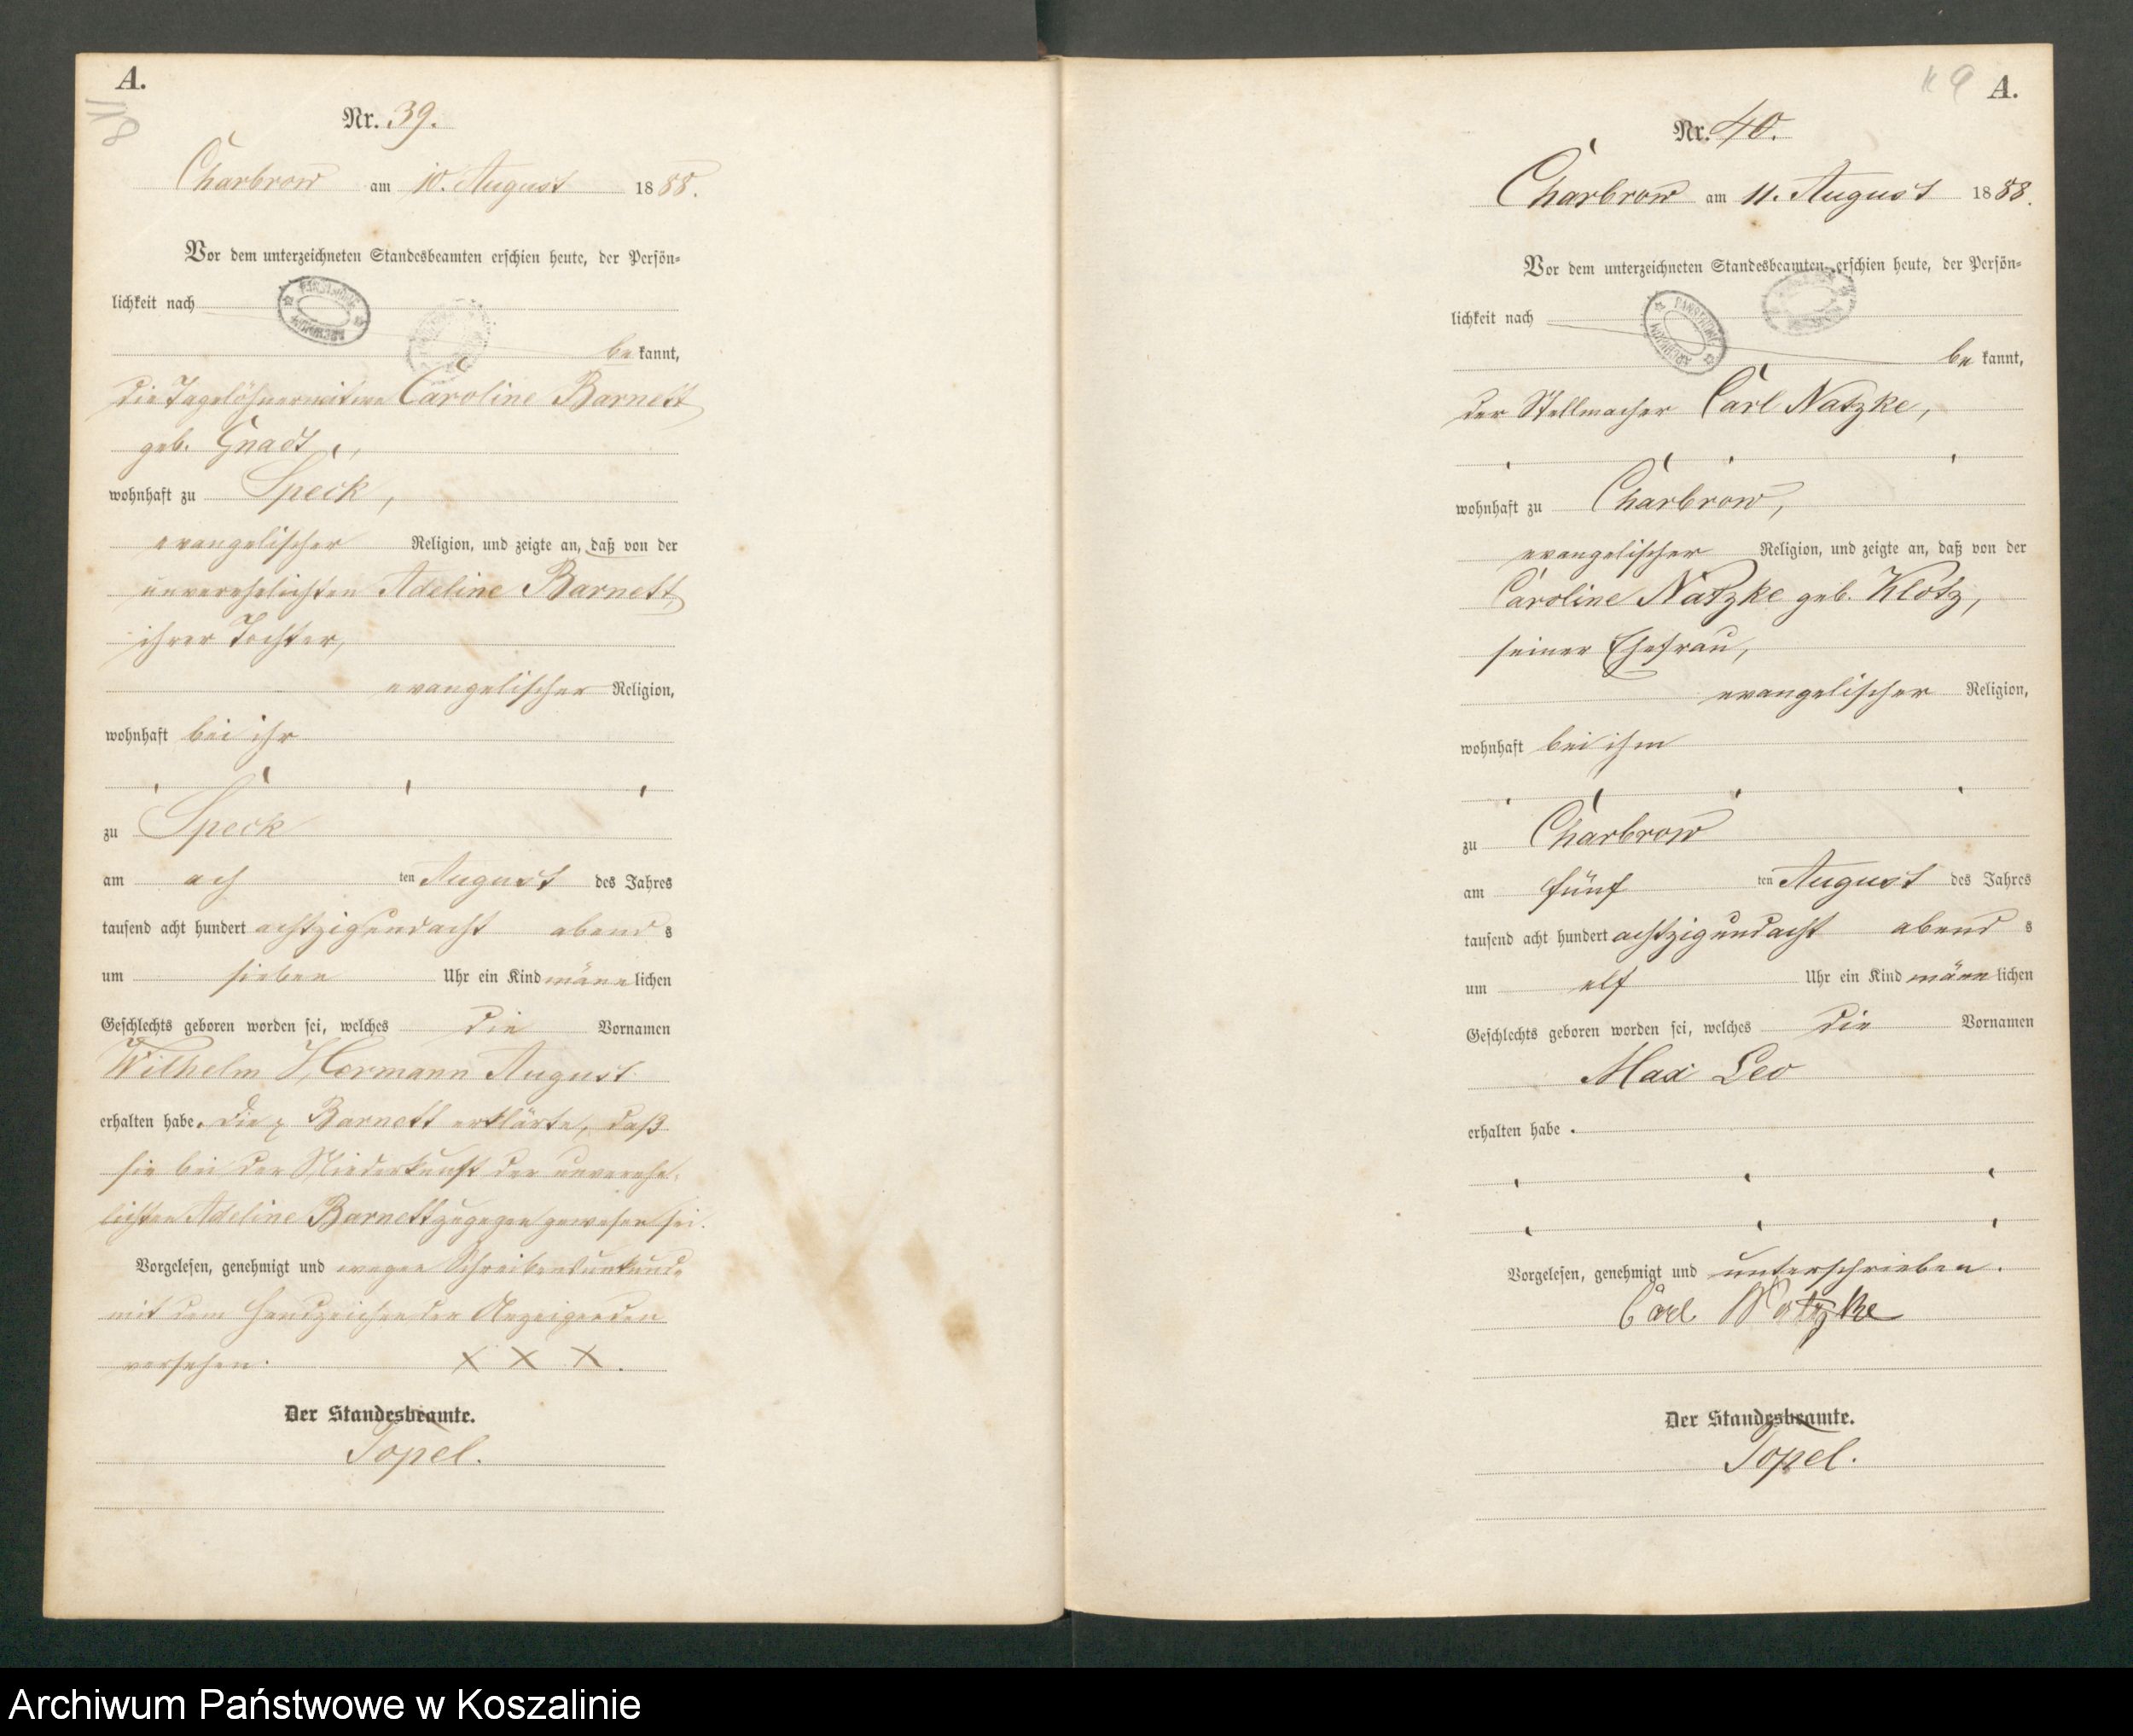 A.
118
Nr. 39.
Charbrow am 10. August 1888.
Vor dem unterzeichneten Standesbeamten erschien heute, der Persön-
lichkeit nach
bekannt,
die Tagelöhnerwitwe Caroline Barnett
geb. Gnadt,
wohnhaft zu Speck,
evangelischer Religion, und zeigte an, daß von der
unverehelichten Adeline Barnett,
ihrer Tochter,
evangelischer Religion,
wohnhaft bei ihr
zu Speck
am achten August des Jahres
tausend acht hundert achtzigundacht abends
um sieben Uhr ein Kind männlichen
Geschlechts geboren worden sei, welches die Vornamen
Wilhelm Hermann August
erhalten habe. Die Barnett erklärte, daß
sie bei der Niederkunft der unverehe-
lichten Adeline Barnett zugegen gewesen sei.
Vorgelesen, genehmigt und wegen Schreibensunkunde
mit dem Handzeichen der Anzeigenden
versehen. X X X.
Der Standesbeamte.
Topel.
A.
Nr. 40.
Charbrow am 11. August 1888.
Vor dem unterzeichneten Standesbeamten erschien heute, der Persön-
lichkeit nach
bekannt,
der Stellmacher Carl Natzke,
wohnhaft zu Charbrow,
evangelischer Religion, und zeigte an, daß von der
Caroline Natzke geb. Klotz,
seiner Ehefrau,
evangelischer Religion,
wohnhaft bei ihm
zu Charbrow
am fünften August des Jahres
tausend acht hundert achtzigundacht abends
um elf Uhr ein Kind männlichen
Geschlechts geboren worden sei, welches die Vornamen
Max Leo
erhalten habe.
Vorgelesen, genehmigt und unterschrieben.
Carl Natzke
Der Standesbeamte.
Topel.
Archiwum Państwowe w Koszalinie